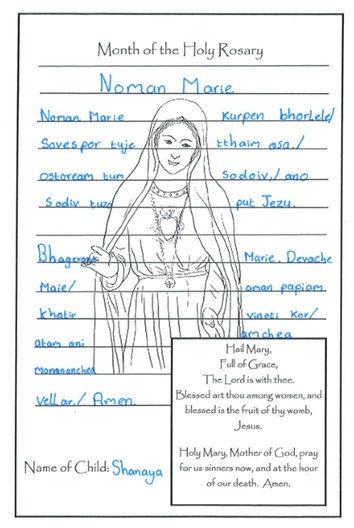 Month of the Holy Rosary
Noman Marie
Noman Marie Kurpen bhorlele/
Soves por tuje tthaim asa./
ostoream tum sodoiv,/ ano
Sodiv tuzo put Jezu.
Marie. Devache
Maie/ aman papiam
khatir vinoti kor/
atam ani amchea
vellar./ Amen.
Hail Mary,
Full of Grace,
The Lord is with thee.
Blessed art thou among women, and
blessed is the fruit of thy womb,
Jesus.
Holy Mary, Mother of God, pray
for us sinners now, and at the hour
of our death. Amen.
Name of Child: Shanaya